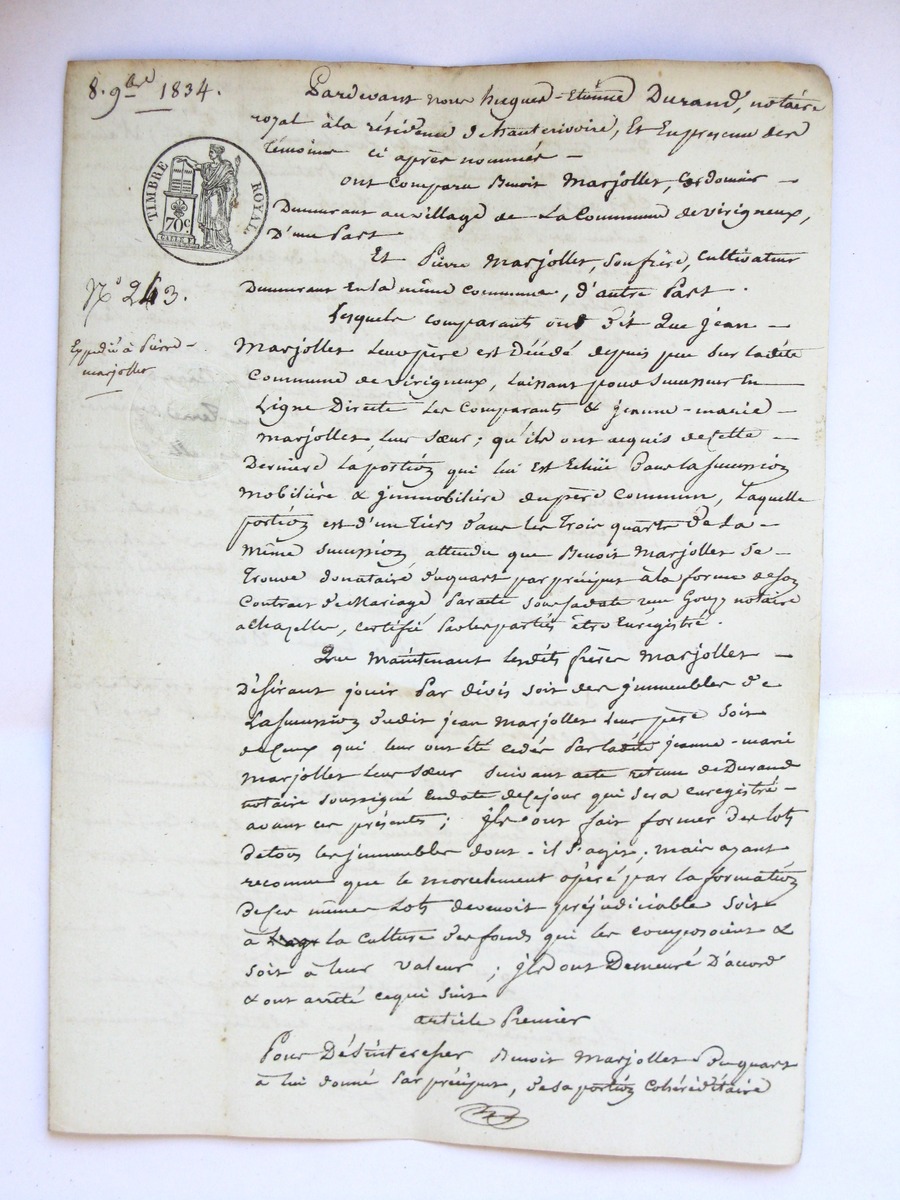 8. 9bre 1834.
TIMBRE ROYAL
70c
N° 243.
Expédié à Pierre
marjollet
Pardevant nous hugues-Etienne Durand, notaire
royal à la résidence de hauterivoire, Et En présence des
témoins ci après nommés
ont Comparu Benoit Marjollet,
Demeurant au village de La Commune de virigneux,
D'une Part
Et Pierre Marjollet, son frère, Cultivateur
Demeurant En la même Commune, d'autre Part.
Lesquels comparants ont dit Que jean
Marjollet Leur père est Décédé depuis peu sur ladite
Commune de virigneux, laissant pour successeur En
Ligne Directe Les Comparants & jeanne-marie
Marjollet, leur sœur; qu'ils ont acquis de Cette
Dernière la portion qui lui Est Echüe Dans la succession
mobilière & jmmobilière du père Commun, Laquelle
portion est d'un Tiers dans les Trois quarts de La
même succession, attendu que Benoit Marjollet Se
Trouve donataire du quart par préciput à la forme de son
Contrat de Mariage, sous sa date notaire
a Chazelles, Certifié Par les parties être Enregistré.
Que Maintenant lesdits frères Marjollet
Désirant jouir Par divis soit des jmmeubles de
La Succession dudit jean Marjollet Leur père soit
de Ceux qui leur ont été cédés Par ladite jeanne-marie
Marjollet leur Sœur suivant acte retenu de Durand
notaire soussigné En date de Ce jour qui sera enregistré
avant ces présents; jls ont fait former des lots
de tous les jmmeubles dont il s'agit; mais ayant
reconnu que le morcelement opéré par la formation
De Ces mêmes Lots devenoit préjudiciable soit
à la Culture des fonds qui les composoient &
soit à leur valeur; jls ont Demeuré D'accord
& ont arrêté ce qui suit
article Premier
Pour Désintéresser Benoit Marjollet Du quart
à lui donné Par préciput, de sa portion Cohéréditaire